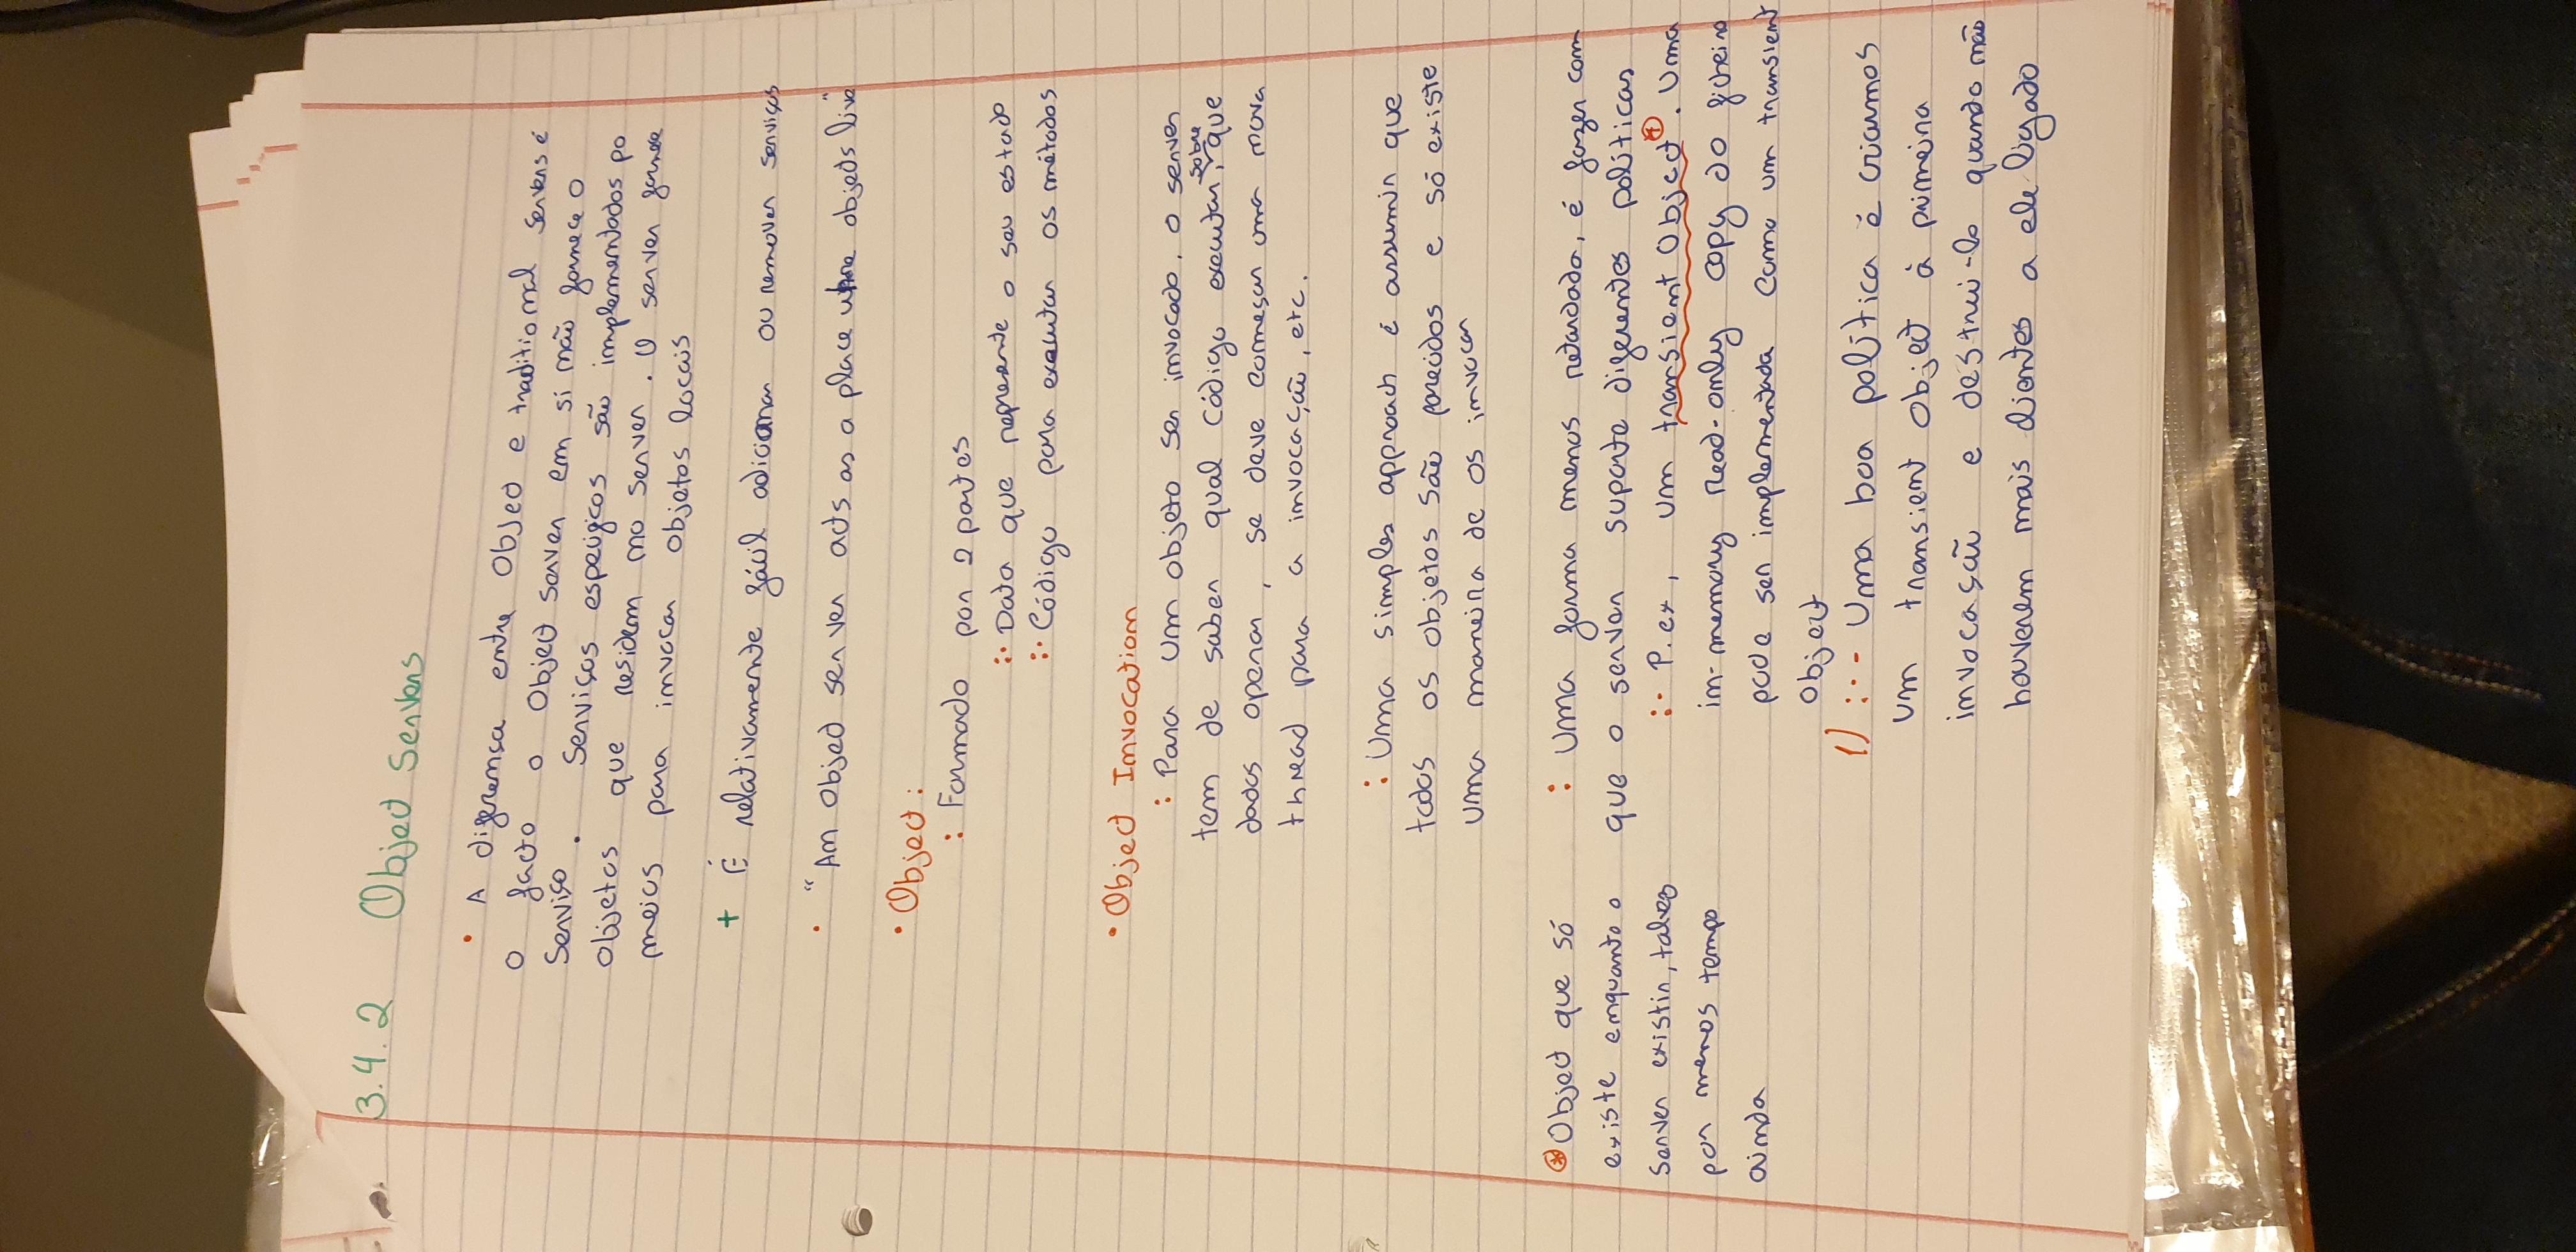 3.4.2 Object Servers
• A diferensa entre Object e traditional servers é
o facto o Object server em si não fornece o
Serviso. Serviços específicos são implementados po
objetos que residem no server. O server fornece
meios para invocar objetos locais
+ É relativamente fácil adicionar ou remover serviços
• "An object server acts as a place where objects live"
• Object:
: Formado por 2 partes
:· Data que represente o seu estado
:· Código para executar os métodos
• Object Invocation
: Para um objeto ser invocado, o server
tem de saber qual código executar, sobre que
dados operar, se deve começar uma nova
thread para a invocação, etc.
: Uma simples approach é assumir que
todos os objetos são parecidos e só existe
uma maneira de os invocar
: Uma forma menos retardada, é fazer com
que o server suporte diferentes políticas
:· P.ex, um transient Object⊛. Uma
in-memory read-only copy do ficheiro
pode ser implementada como um transient
object
1) :·- Uma boa política é criarmos
um transient object à primeira
invocasão e destrui-lo quando não
houverem mais clientes a ele ligado
⊛ Object que só
existe enquanto o
server existir, talvez
por menos tempo
ainda